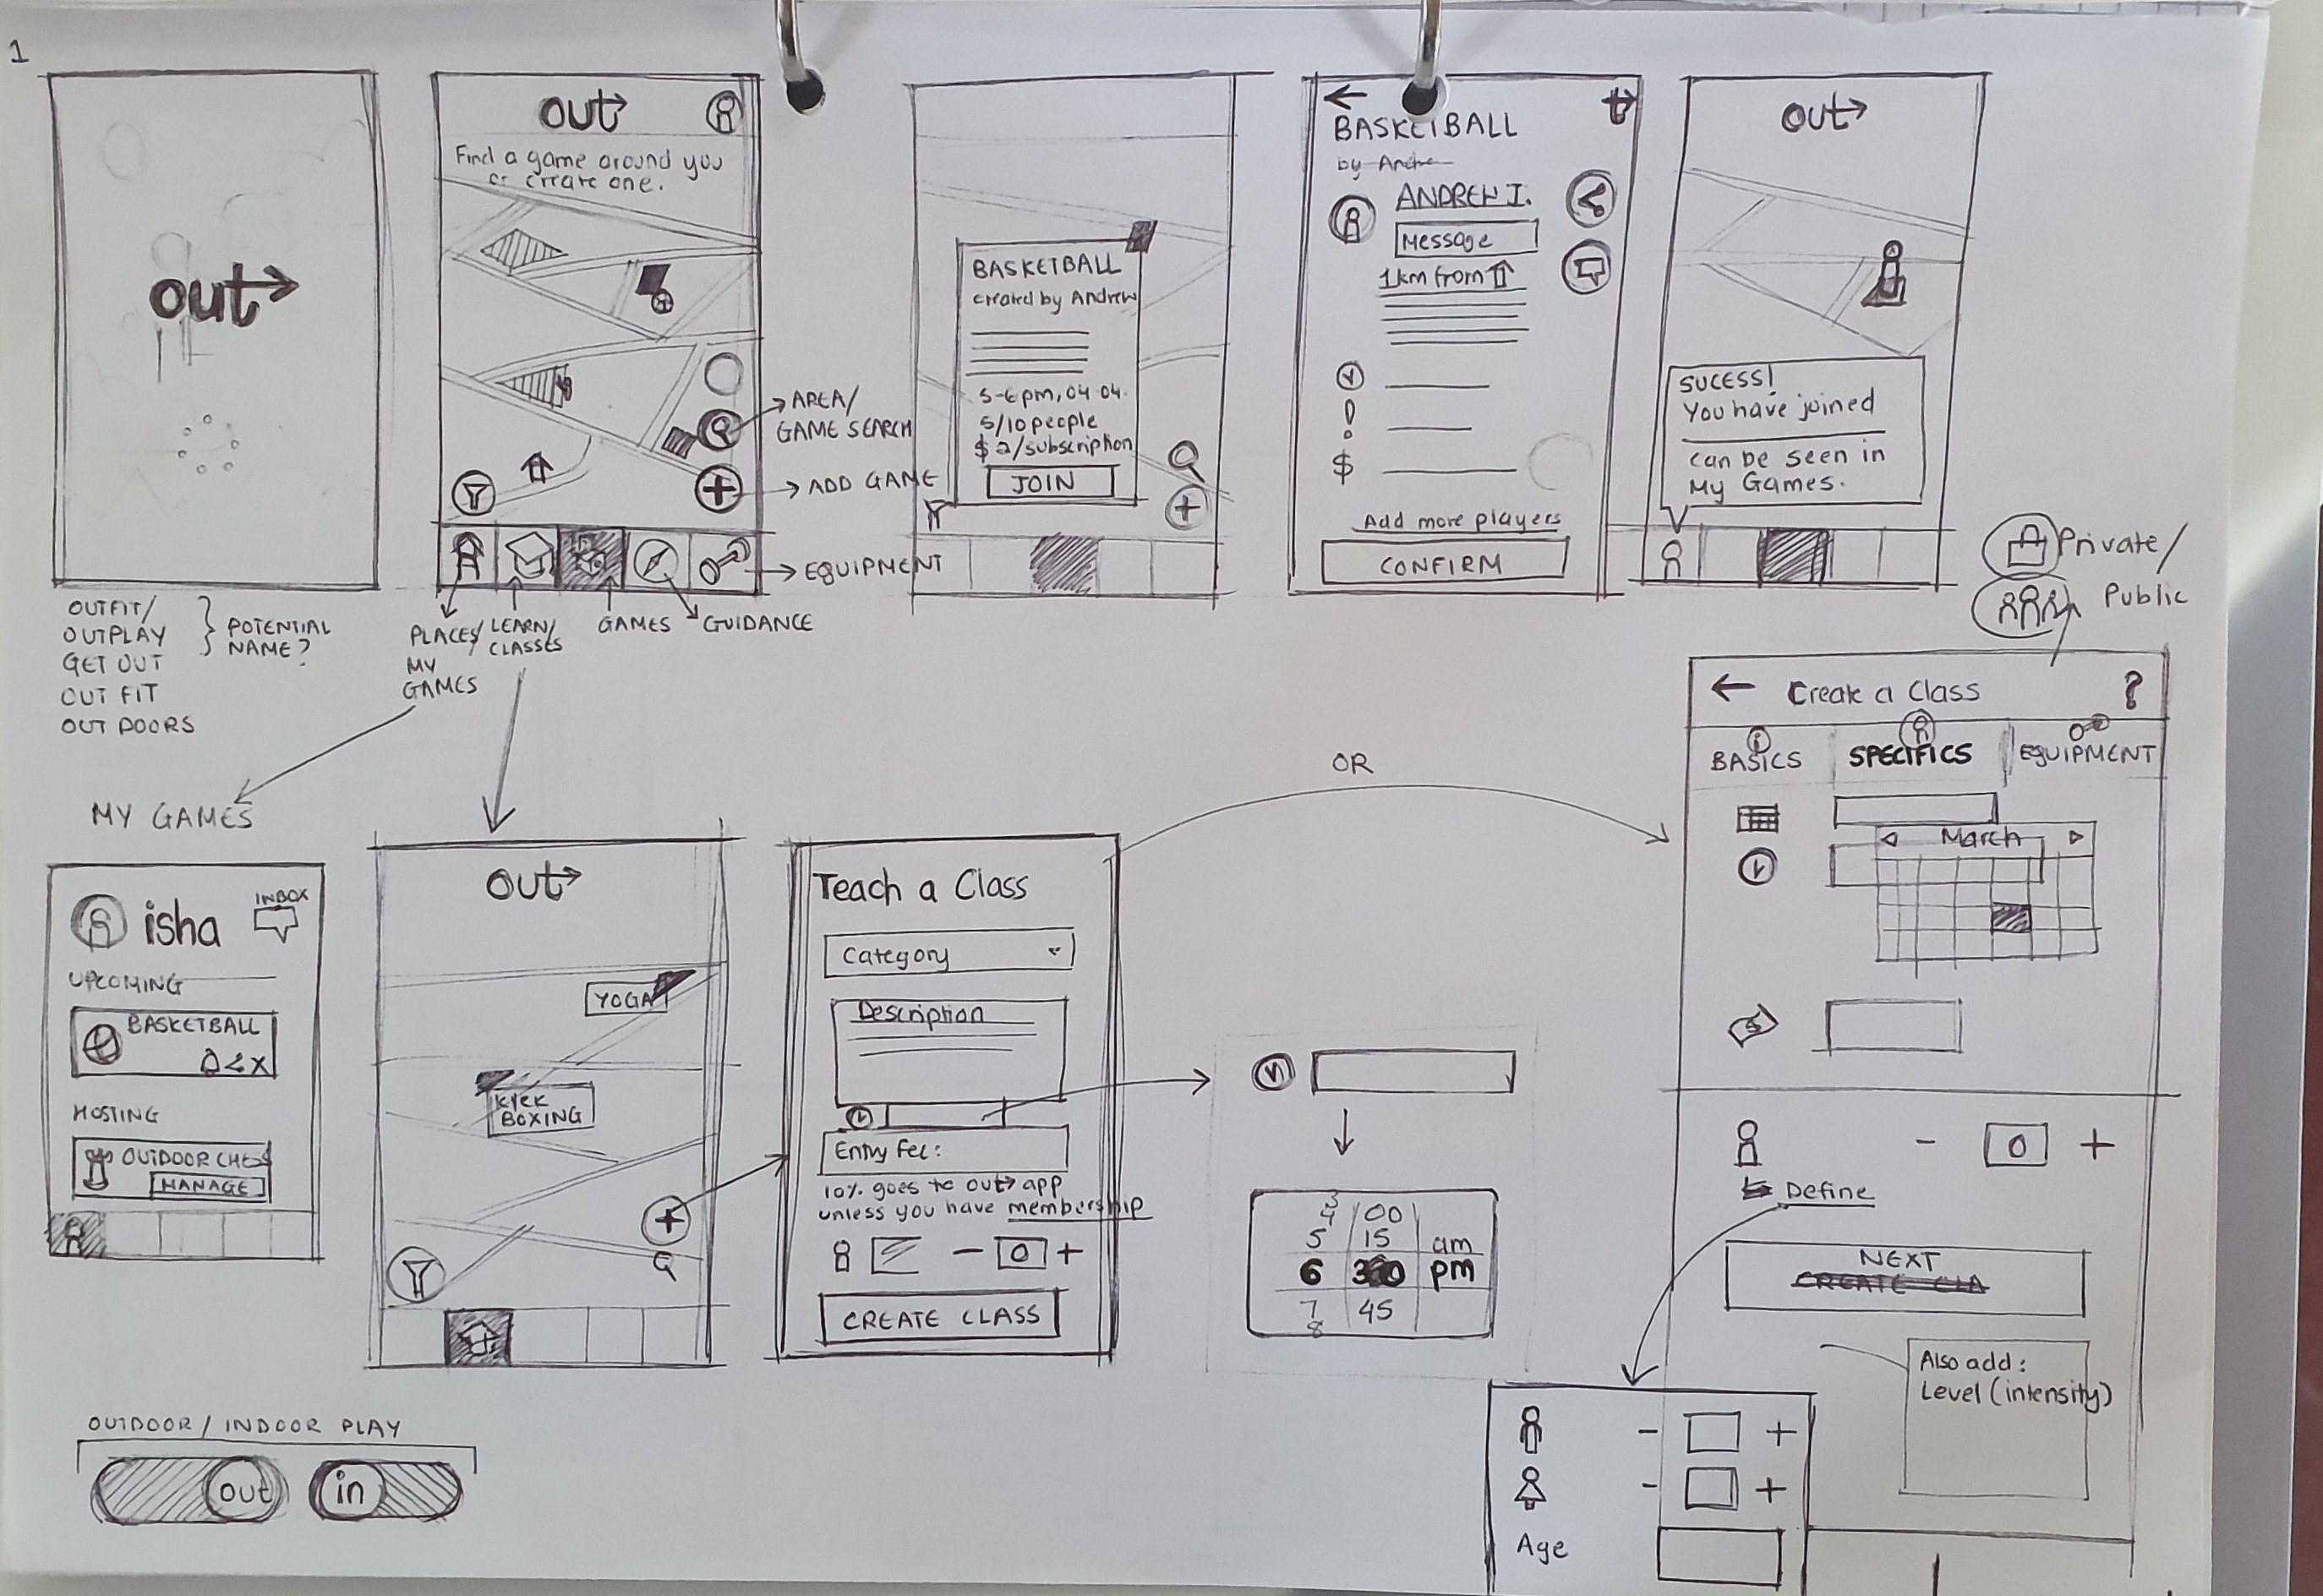 1
out
OUTFIT/
OUTPLAY
GET OUT
OUT FIT
OUT DOORS
POTENTIAL
NAME?
out
Find a game around you
or create one.
AREA/
GAME SEARCH
ADD GAME
EQUIPMENT
PLACES/
MY
GAMES
LEARN/
CLASSES
GAMES
GUIDANCE
BASKETBALL
created by Andrew
5-6pm, 04.04.
5/10 people
$2/subscription
JOIN
BASKETBALL
by Andre
ANDREW I.
Message
1km from
$
Add more players
CONFIRM
out
SUCESS!
You have joined
can be seen in
My Games.
Private/
Public
MY GAMES
isha
INBOX
UPCOMING
BASKETBALL
HOSTING
OUTDOOR CHES
MANAGE
out
YOGA
KICK
BOXING
Teach a Class
Category
Description
Entry Fee:
10% goes to out app
unless you have membership
- 0 +
CREATE CLASS
OR
3
4 00
5 15 am
6 30 pm
7 45
8
Create a Class ?
BASICS
SPECIFICS
EQUIPMENT
March
- 0 +
Define
NEXT
CREATE CLA
Also add:
Level (intensity)
- +
- +
Age
OUTDOOR / INDOOR PLAY
out
in